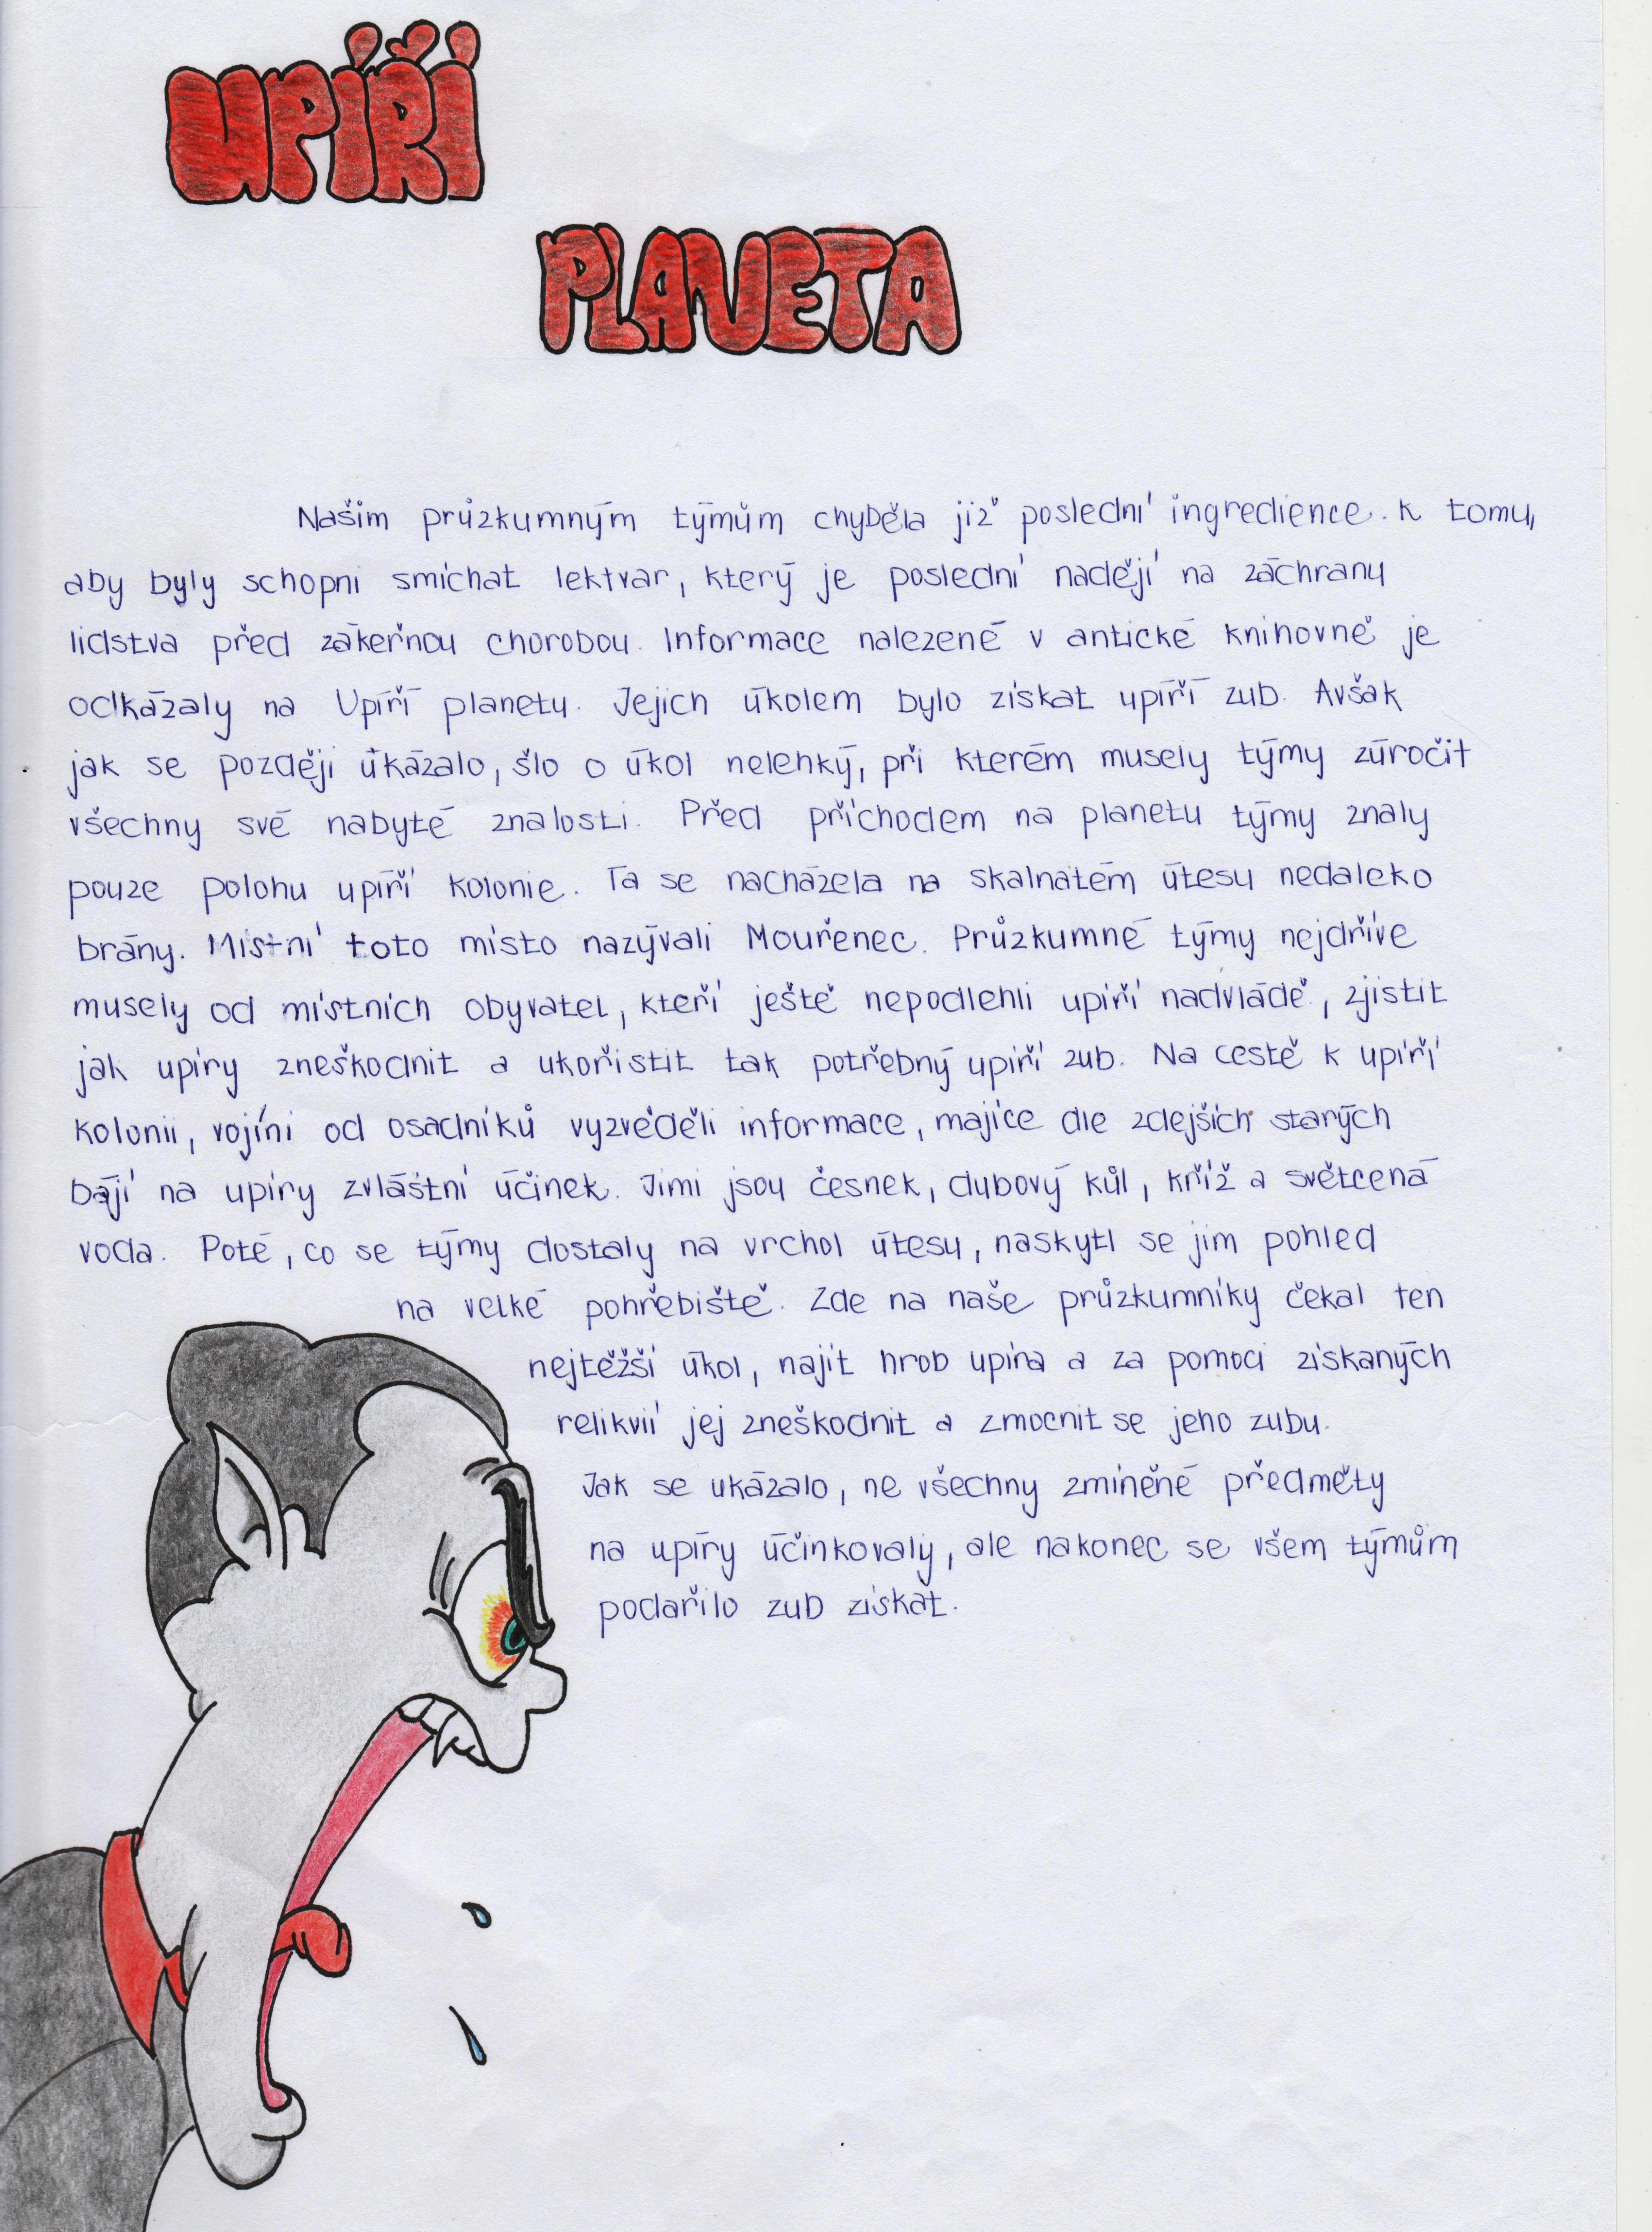 UPÍŘÍ
PLANETA
Našim průzkumným týmům chyběla již poslední ingredience. K tomu,
aby byly schopni smíchat lektvar, který je poslední nadějí na záchranu
lidstva před zákeřnou chorobou. Informace nalezené v antické knihovně je
odkázaly na Upíří planetu. Jejich úkolem bylo získat upíří zub. Avšak
jak se později úkázalo, šlo o úkol nelehký, při kterém musely týmy zúročit
všechny své nabyté znalosti. Před příchodem na planetu týmy znaly
pouze polohu upíří kolonie. Ta se nacházela na skalnatém útesu nedaleko
brány. Místní toto místo nazývali Mouřenec. Průzkumné týmy nejdříve
musely od místních obyvatel, kteří ještě nepodlehli upíří nadvládě, zjistit
jak upíry zneškodnit a ukořistit tak potřebný upíří zub. Na cestě k upíří
kolonii, vojíni od osadníků vyzvěděli informace, majíce dle zdejších starých
bájí na upíry zvláštní účinek. Jimi jsou česnek, dubový kůl, kříž a světcená
voda. Poté, co se týmy dostaly na vrchol útesu, naskytl se jim pohled
na velké pohřebiště. Zde na naše průzkumníky čekal ten
nejtěžší úkol, najít hrob upíra a za pomoci získaných
relikvií jej zneškodnit a zmocnit se jeho zubu.
Jak se ukázalo, ne všechny zmíněné předměty
na upíry účinkovaly, ale nakonec se všem týmům
podařilo zub získat.